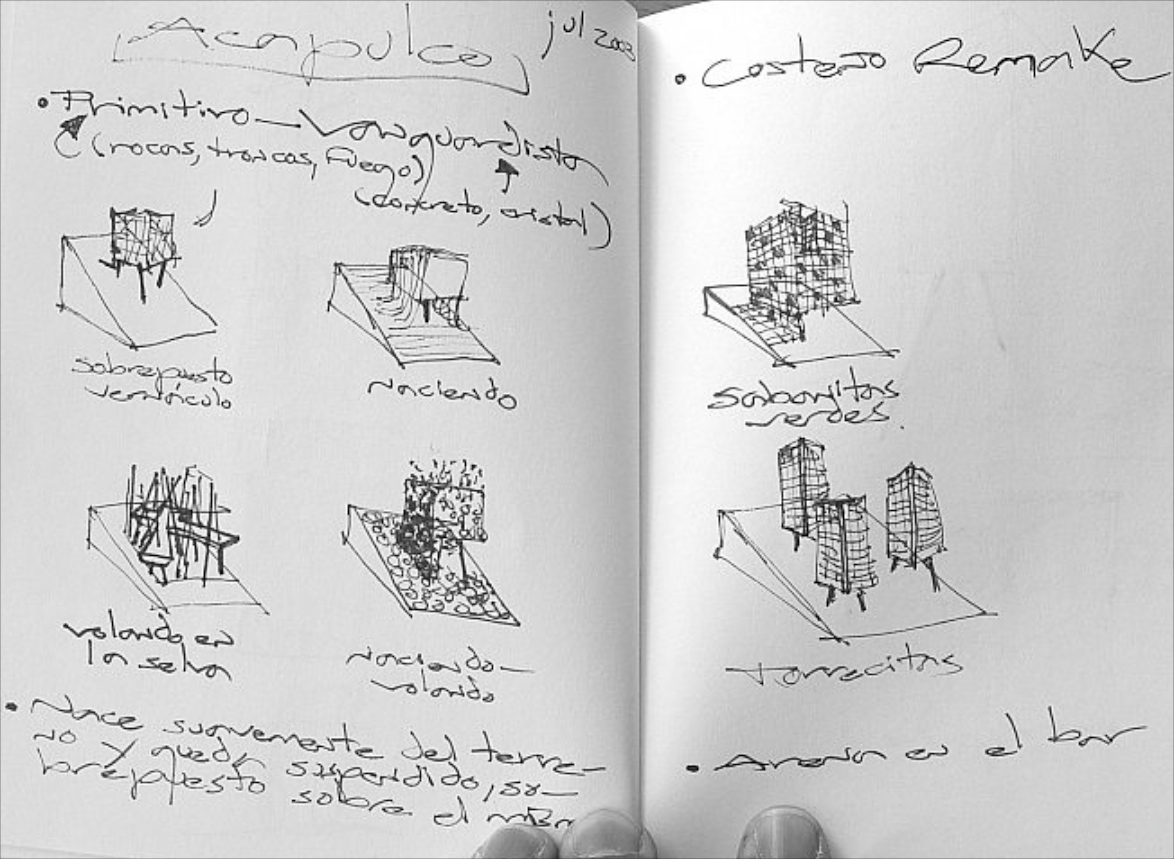 Acapulco
jul 2003
• Primitivo — Vanguardista
(rocas, troncos, fuego)
(concreto, cristal)
sobrepuesto
vernáculo
naciendo
volando en
la selva
naciendo-
volando
• Nace suavemente del terre-
no y queda suspendido, so-
brepuesto sobre el mismo
• Costero Remake
sabanitas
verdes.
torrecitas
• Arena en el bar